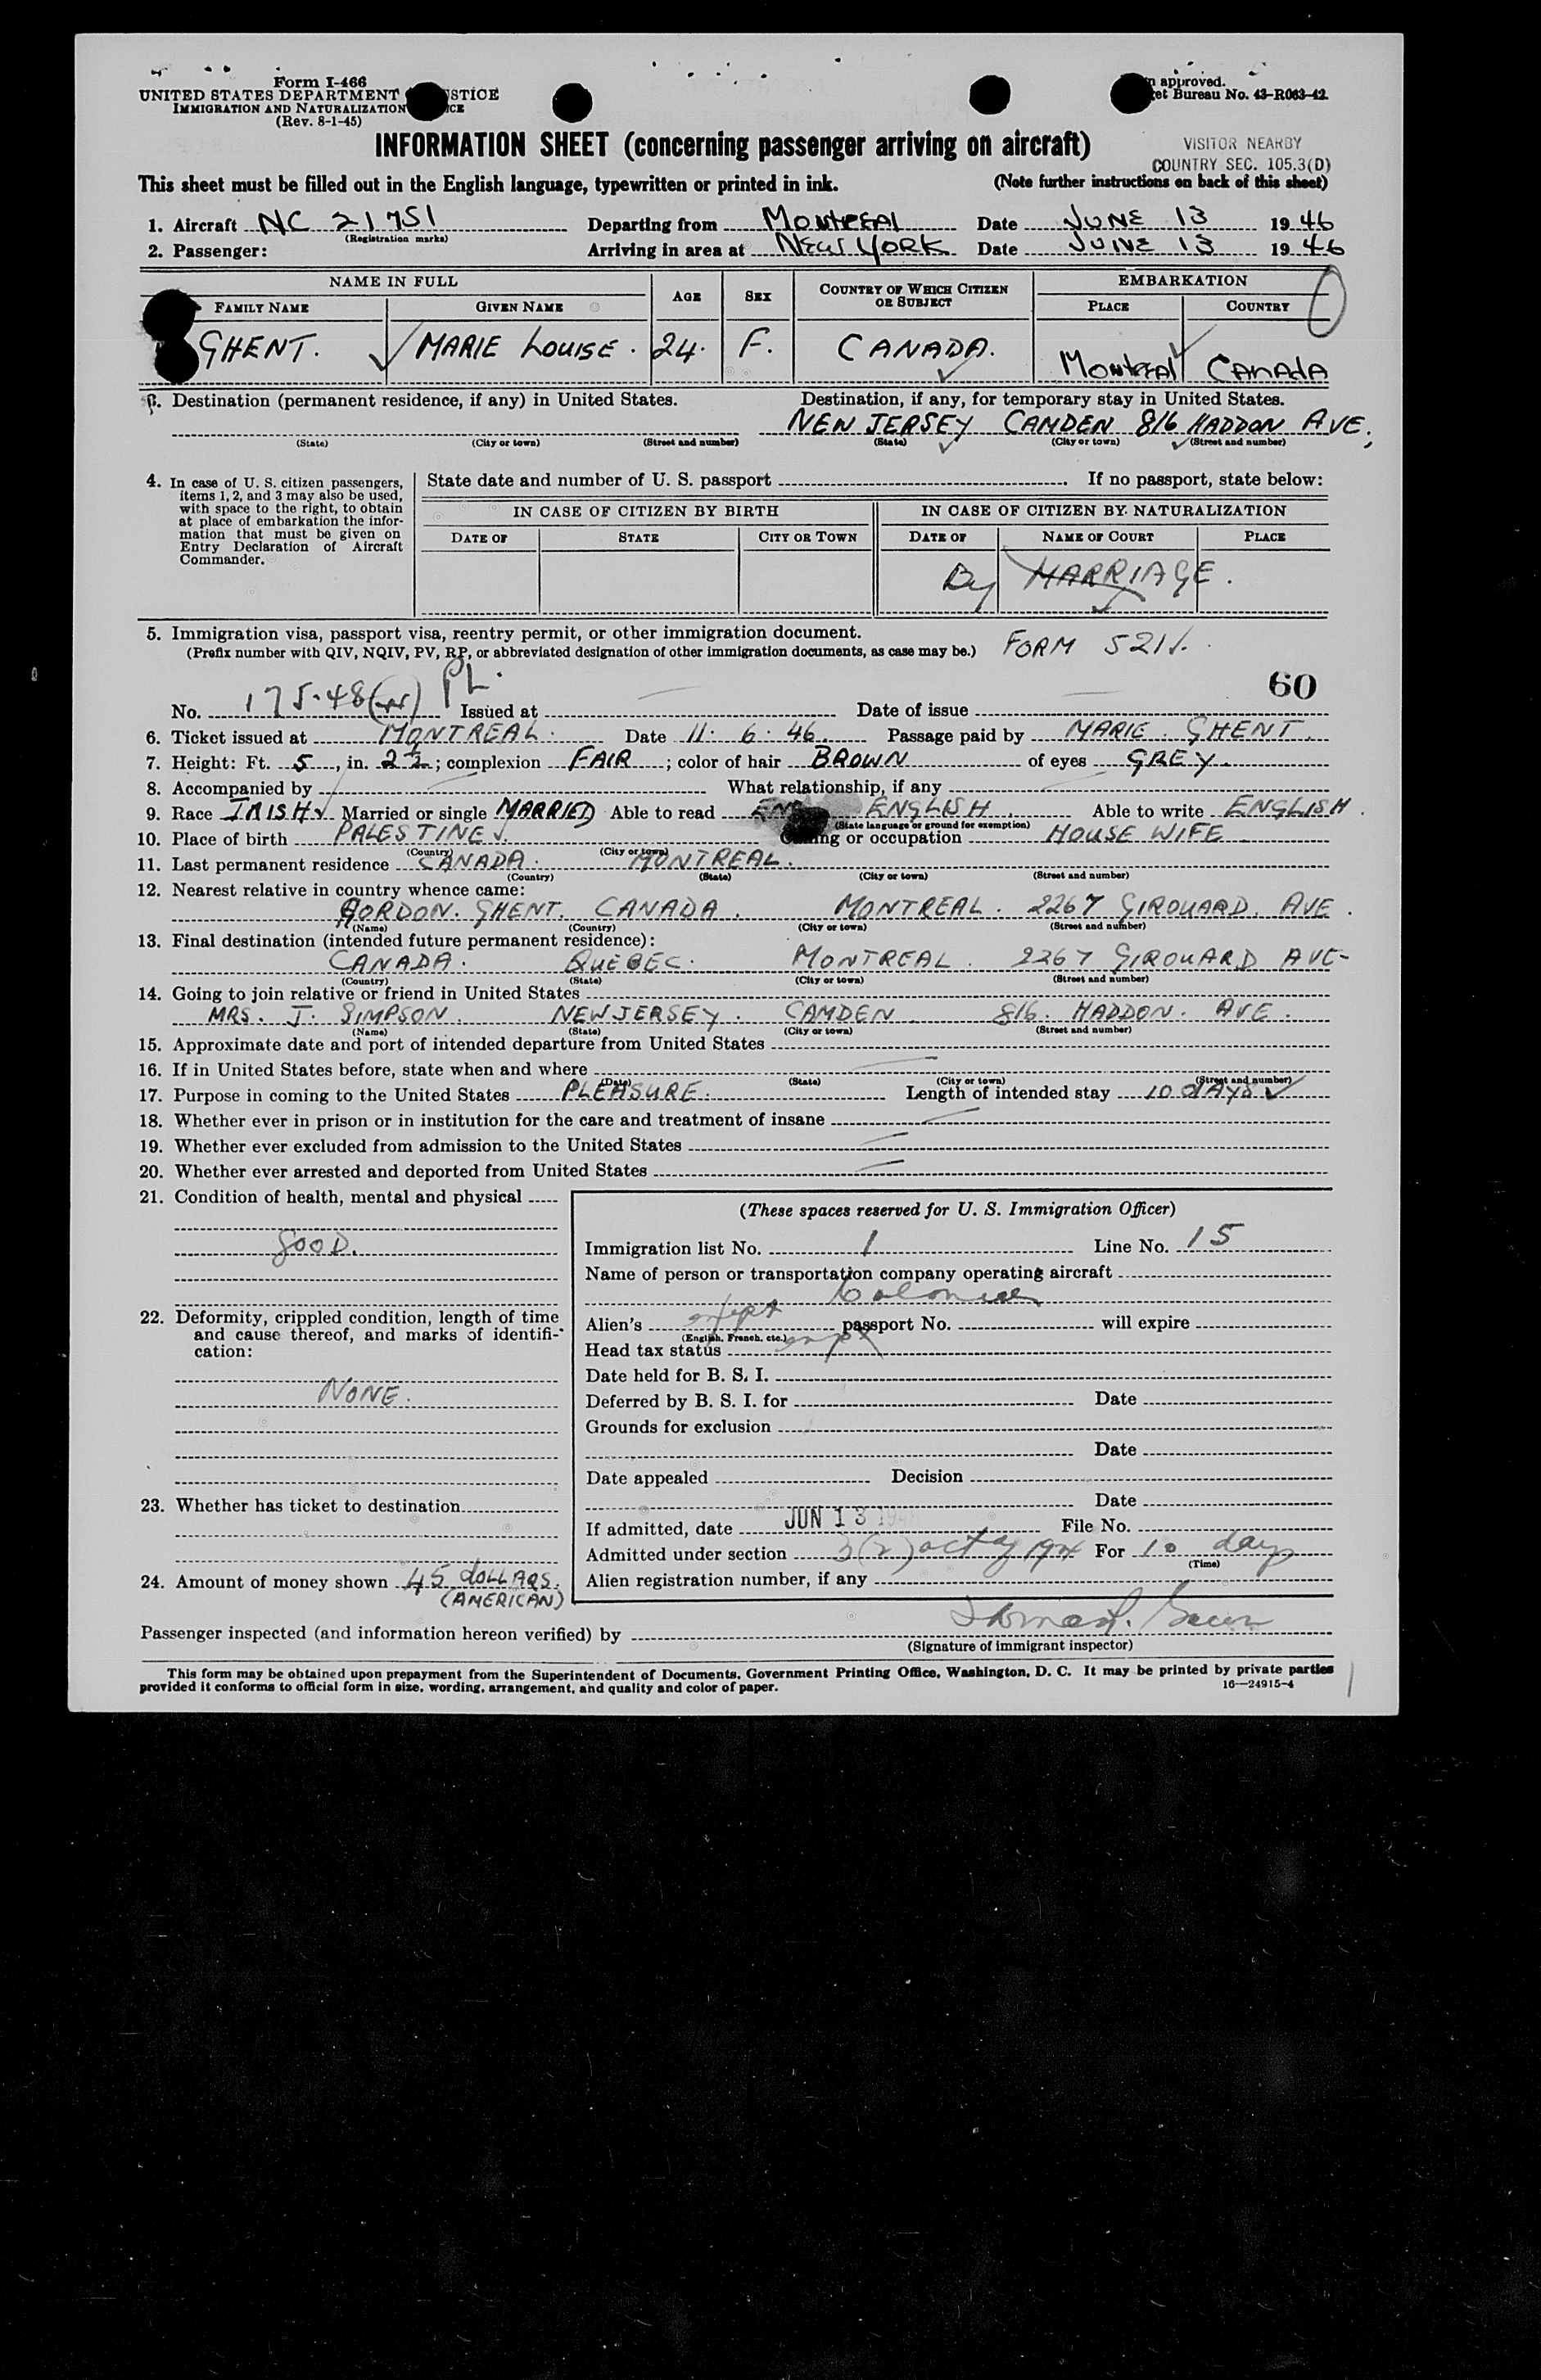 Form I-466
UNITED STATES DEPARTMENT STICE
IMMIGRATION AND NATURALIZATION ICE
(Rev. 8-1-45)
approved.
et Bureau No. 43-R063-42.
INFORMATION SHEET (concerning passenger arriving on aircraft)
VISITOR NEARBY
COUNTRY SEC. 105.3(D)
This sheet must be filled out in the English language, typewritten or printed in ink. (Note further instructions on back of this sheet)
1. Aircraft NC 21751 Departing from Montreal Date JUNE 13 1946
(Registration marks)
2. Passenger: Arriving in area at New York Date JUNE 13 1946
NAME IN FULL AGE SEX COUNTRY OF WHICH CITIZEN OR SUBJECT EMBARKATION
FAMILY NAME GIVEN NAME PLACE COUNTRY
GHENT. MARIE LOUISE. 24. F. CANADA. Montreal CANADA
3. Destination (permanent residence, if any) in United States. Destination, if any, for temporary stay in United States.
NEW JERSEY CAMDEN 816 HADDON AVE.
(State) (City or town) (Street and number) (State) (City or town) (Street and number)
4. In case of U. S. citizen passengers, items 1, 2, and 3 may also be used, with space to the right, to obtain at place of embarkation the information that must be given on Entry Declaration of Aircraft Commander.
State date and number of U. S. passport If no passport, state below:
IN CASE OF CITIZEN BY BIRTH IN CASE OF CITIZEN BY NATURALIZATION
DATE OF STATE CITY OR TOWN DATE OF NAME OF COURT PLACE
By MARRIAGE.
5. Immigration visa, passport visa, reentry permit, or other immigration document.
(Prefix number with QIV, NQIV, PV, RP, or abbreviated designation of other immigration documents, as case may be.) FORM 521
60
No. 175.48 PL. Issued at Date of issue
6. Ticket issued at MONTREAL. Date 11. 6. 46. Passage paid by MARIE. GHENT.
7. Height: Ft. 5, in. 2½; complexion FAIR; color of hair BROWN of eyes GREY.
8. Accompanied by What relationship, if any
9. Race IRISH Married or single MARRIED Able to read ENG ENGLISH. Able to write ENGLISH.
(State language or ground for exemption)
10. Place of birth PALESTINE ng or occupation HOUSE WIFE
(Country) (City or town)
11. Last permanent residence CANADA. MONTREAL.
(Country) (State) (City or town) (Street and number)
12. Nearest relative in country whence came:
GORDON. GHENT. CANADA. MONTREAL. 2267 GIROUARD. AVE.
(Name) (Country) (City or town) (Street and number)
13. Final destination (intended future permanent residence):
CANADA. QUEBEC. MONTREAL. 2267 GIROUARD AVE-
(Country) (State) (City or town) (Street and number)
14. Going to join relative or friend in United States
MRS. J. SIMPSON. NEW JERSEY. CAMDEN 816. HADDON. AVE.
(Name) (State) (City or town) (Street and number)
15. Approximate date and port of intended departure from United States
16. If in United States before, state when and where
(Date) (State) (City or town) (Street and number)
17. Purpose in coming to the United States PLEASURE. Length of intended stay 10 dAys
18. Whether ever in prison or in institution for the care and treatment of insane
19. Whether ever excluded from admission to the United States
20. Whether ever arrested and deported from United States
21. Condition of health, mental and physical
gooD.
22. Deformity, crippled condition, length of time and cause thereof, and marks of identification:
NONE.
23. Whether has ticket to destination
24. Amount of money shown 45 dOLLARS.
(AMERICAN)
(These spaces reserved for U. S. Immigration Officer)
Immigration list No. 1 Line No. 15
Name of person or transportation company operating aircraft
Colonial
Alien's passport No. will expire
(English, French, etc.)
Head tax status
Date held for B. S. I.
Deferred by B. S. I. for Date
Grounds for exclusion
Date
Date appealed Decision
Date
If admitted, date JUN 13 194 File No.
Admitted under section 3(2) act of 1924 For 10 days
(Time)
Alien registration number, if any
Passenger inspected (and information hereon verified) by
(Signature of immigrant inspector)
This form may be obtained upon prepayment from the Superintendent of Documents, Government Printing Office, Washington, D. C. It may be printed by private parties
provided it conforms to official form in size, wording, arrangement, and quality and color of paper. 16—24915-4